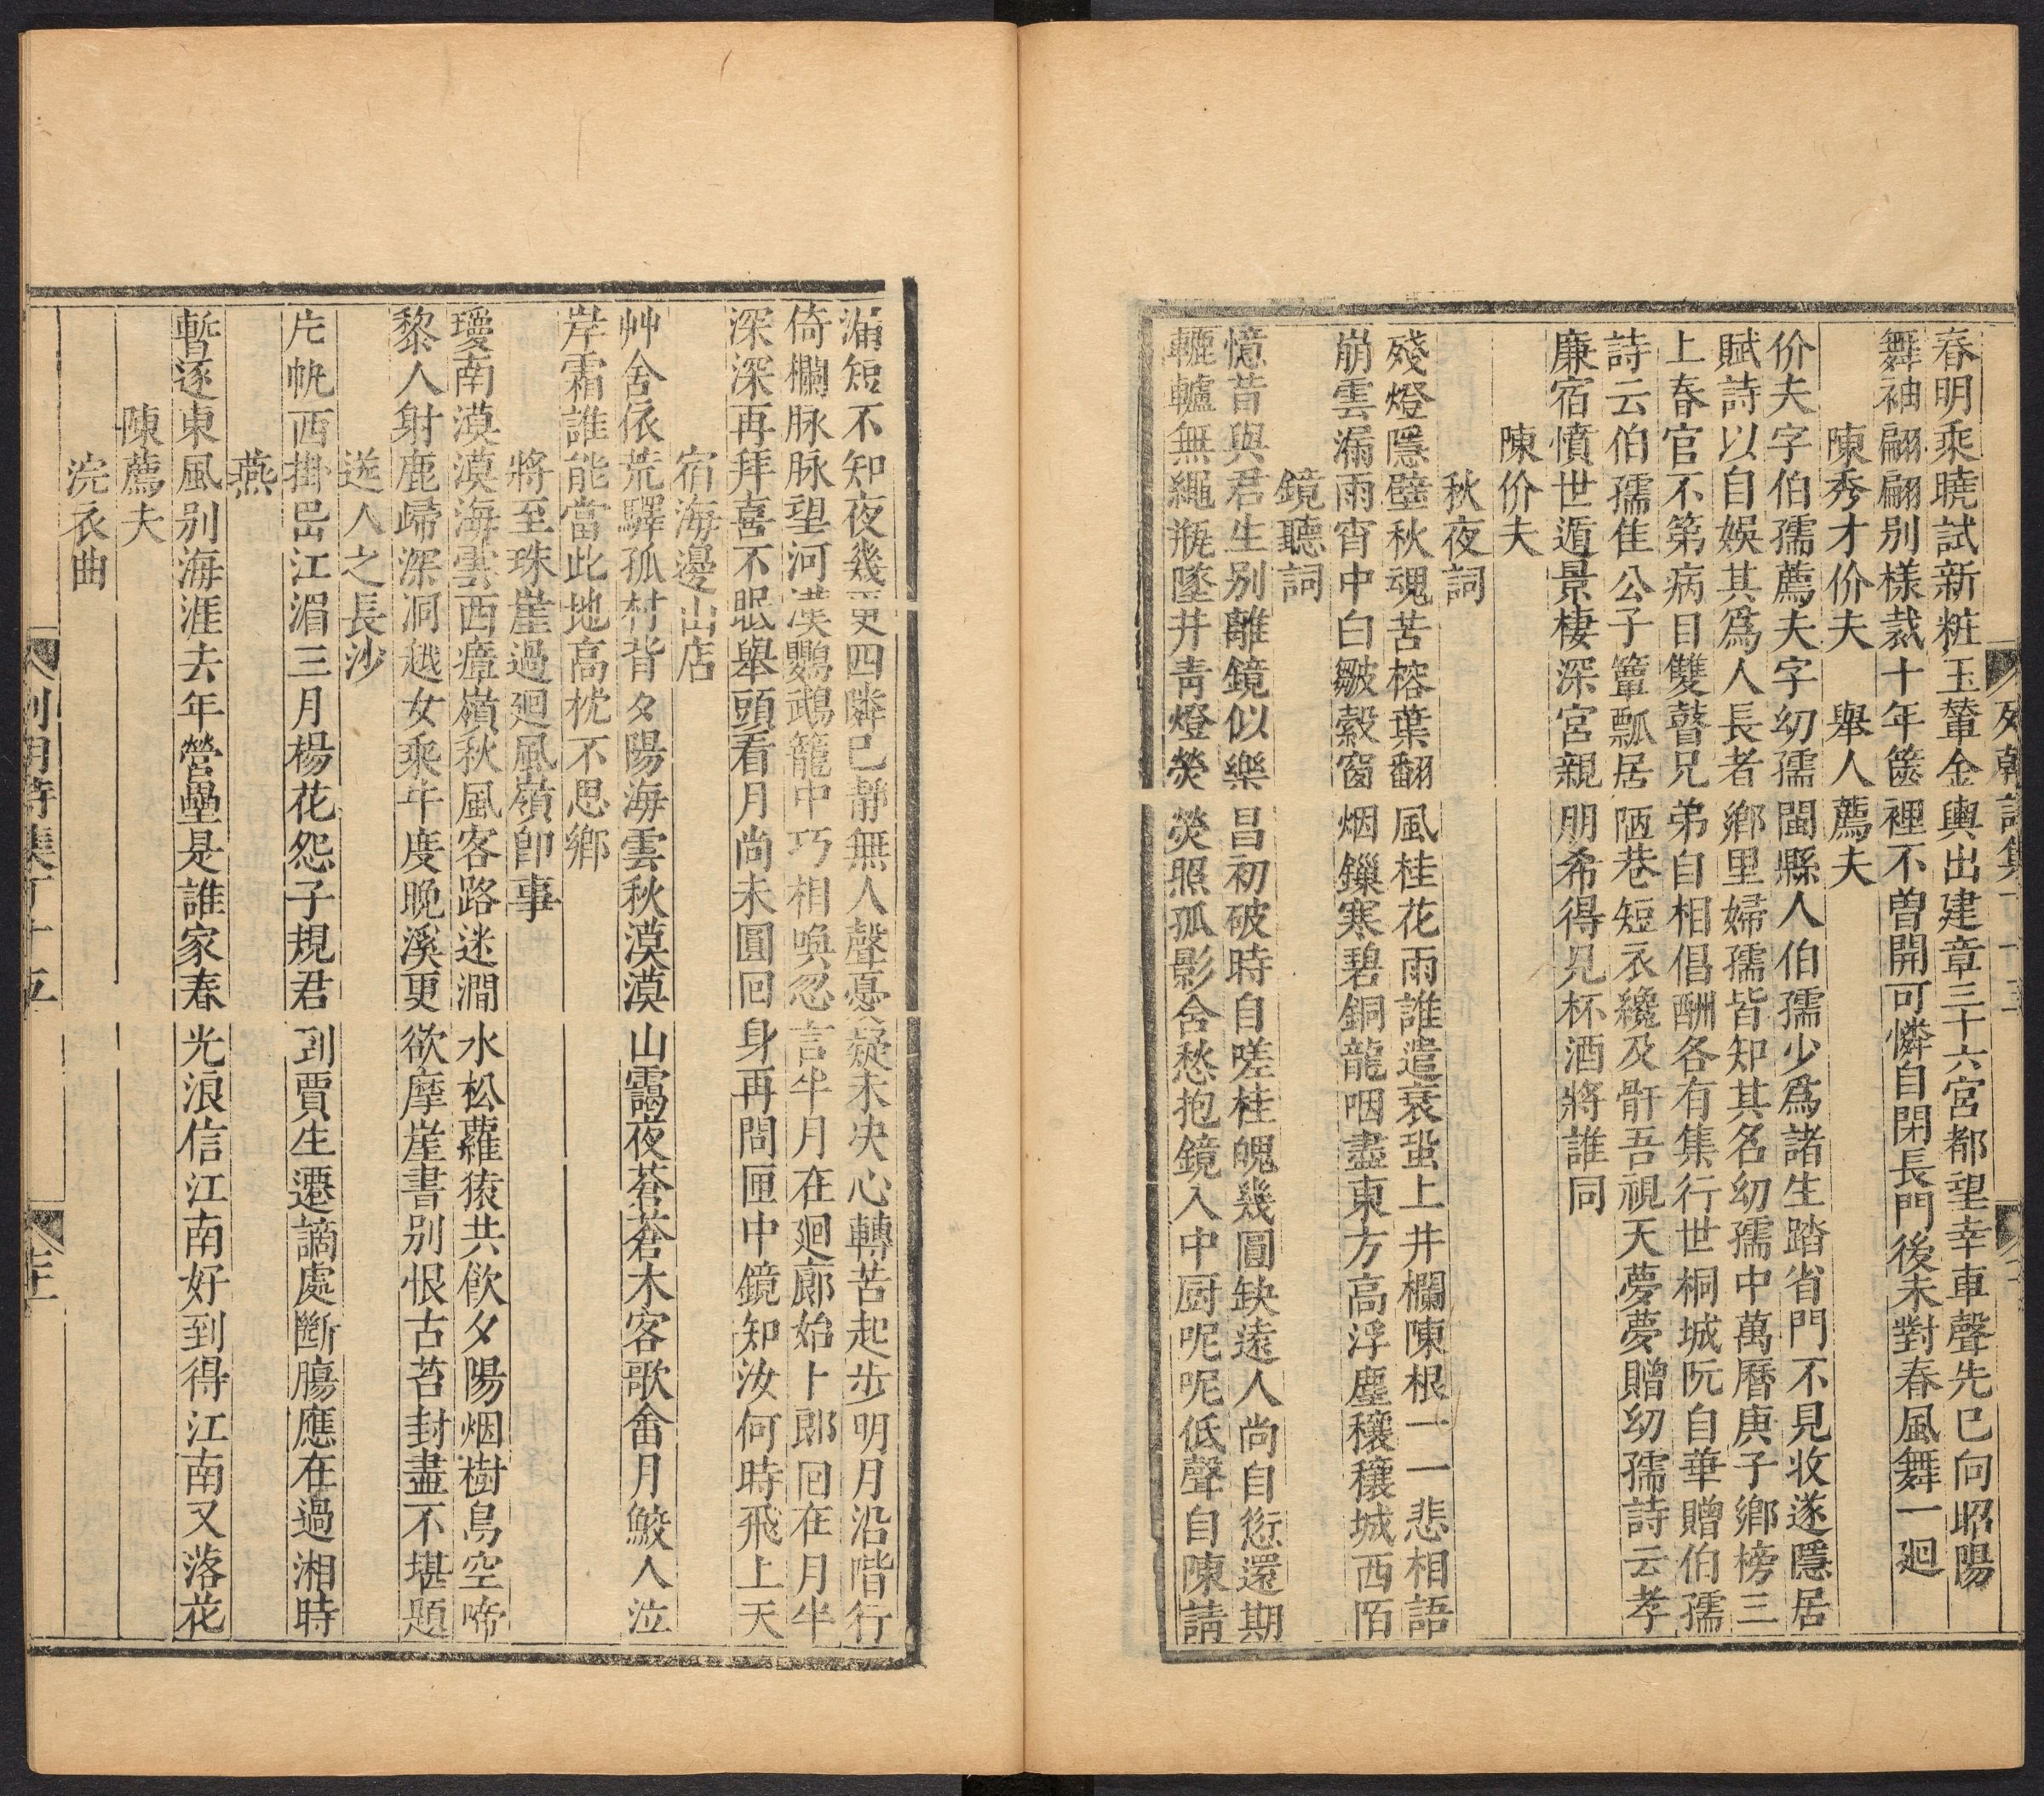 列朝詩集丁十五
春明乘曉試新粧玉輦金輿出建章三十六宮都望幸車聲先已向昭陽
舞袖翩翩別樣裁十年篋裡不曾開可憐自閉長門後未對春風舞一廻
陳秀才价夫 舉人薦夫
价夫字伯孺薦夫字幼孺閩縣人伯孺少爲諸生踏省門不見收遂隱居
賦詩以自娛其爲人長者鄉里婦孺皆知其名幼孺中萬曆庚子鄉榜三
上春官不第病目雙瞽兄弟自相倡酬各有集行世桐城阮自華贈伯孺
詩云伯孺佳公子簞瓢居陋巷短衣纔及骭吾視天夢夢贈幼孺詩云孝
廉宿憤世遁景棲深宮親朋希得見杯酒將誰同
陳价夫
秋夜詞
殘燈隱壁秋魂苦榕葉翻風桂花雨誰遣哀蛩上井欄陳根一一悲相語
崩雲漏雨宵中白皺縠窗烟鏁寒碧銅龍咽盡東方高浮塵穰穰城西陌
鏡聽詞
憶昔與君生別離鏡似樂昌初破時自嗟桂魄幾圓缺遠人尚自愆還期
轆轤無繩瓶墜井靑燈熒熒照孤影含愁抱鏡入中厨呢呢低聲自陳請
漏短不知夜幾更四隣已靜無人聲憂疑未决心轉苦起步明月沿階行
倚欄脉脉望河漢鸚鵡籠中巧相喚忽言半月在廻廊始卜郎囘在月半
深深再拜喜不眠舉頭看月尚未圓囘身再問匣中鏡知汝何時飛上天
宿海邊山店
艸舍依荒驛孤村背夕陽海雲秋漠漠山靄夜蒼蒼木客歌畬月鮫人泣
岸霜誰能當此地高枕不思鄉
將至珠崖過廻風嶺卽事
瓊南漠漠海雲西瘴嶺秋風客路迷澗水松蘿猿共飮夕陽烟樹鳥空啼
黎人射鹿歸深洞越女乘牛度晚溪更欲摩崖書別恨古苔封盡不堪題
送人之長沙
片帆西掛出江湄三月楊花怨子規君到賈生遷謫處斷膓應在過湘時
燕
暫逐東風別海涯去年營壘是誰家春光浪信江南好到得江南又落花
陳薦夫
浣衣曲
列朝詩集丁十五